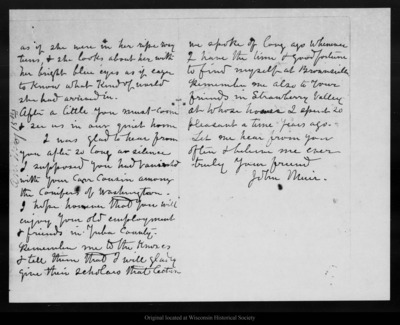 as if she were in her ripe
teens & she looks about her with
her bright blue eyes as if eager
to know what kind of world
she had arrived in.
After a little you must come
& see us in any quiet home
I was glad to hear from
you after so long a silence
I supposed you had vanished
with your Carr Cousin among
the Conifers of Washington.
I hope however that you will
enjoy your old employment
& friends in Yuba County.
Remember me to the Knoxes
& tell them that I will gladly
give their scholars that lecture
we spoke of long ago whenever
I have the time & good fortune
to find myself at Brownsville
Remember me also to your
friends in Strawberry Valley
at whose house I spent so
pleasant a time years ago.
Let me hear from you
often & believe me ever
truly your friend
John Muir.
Original located at Wisconsin Historical Society